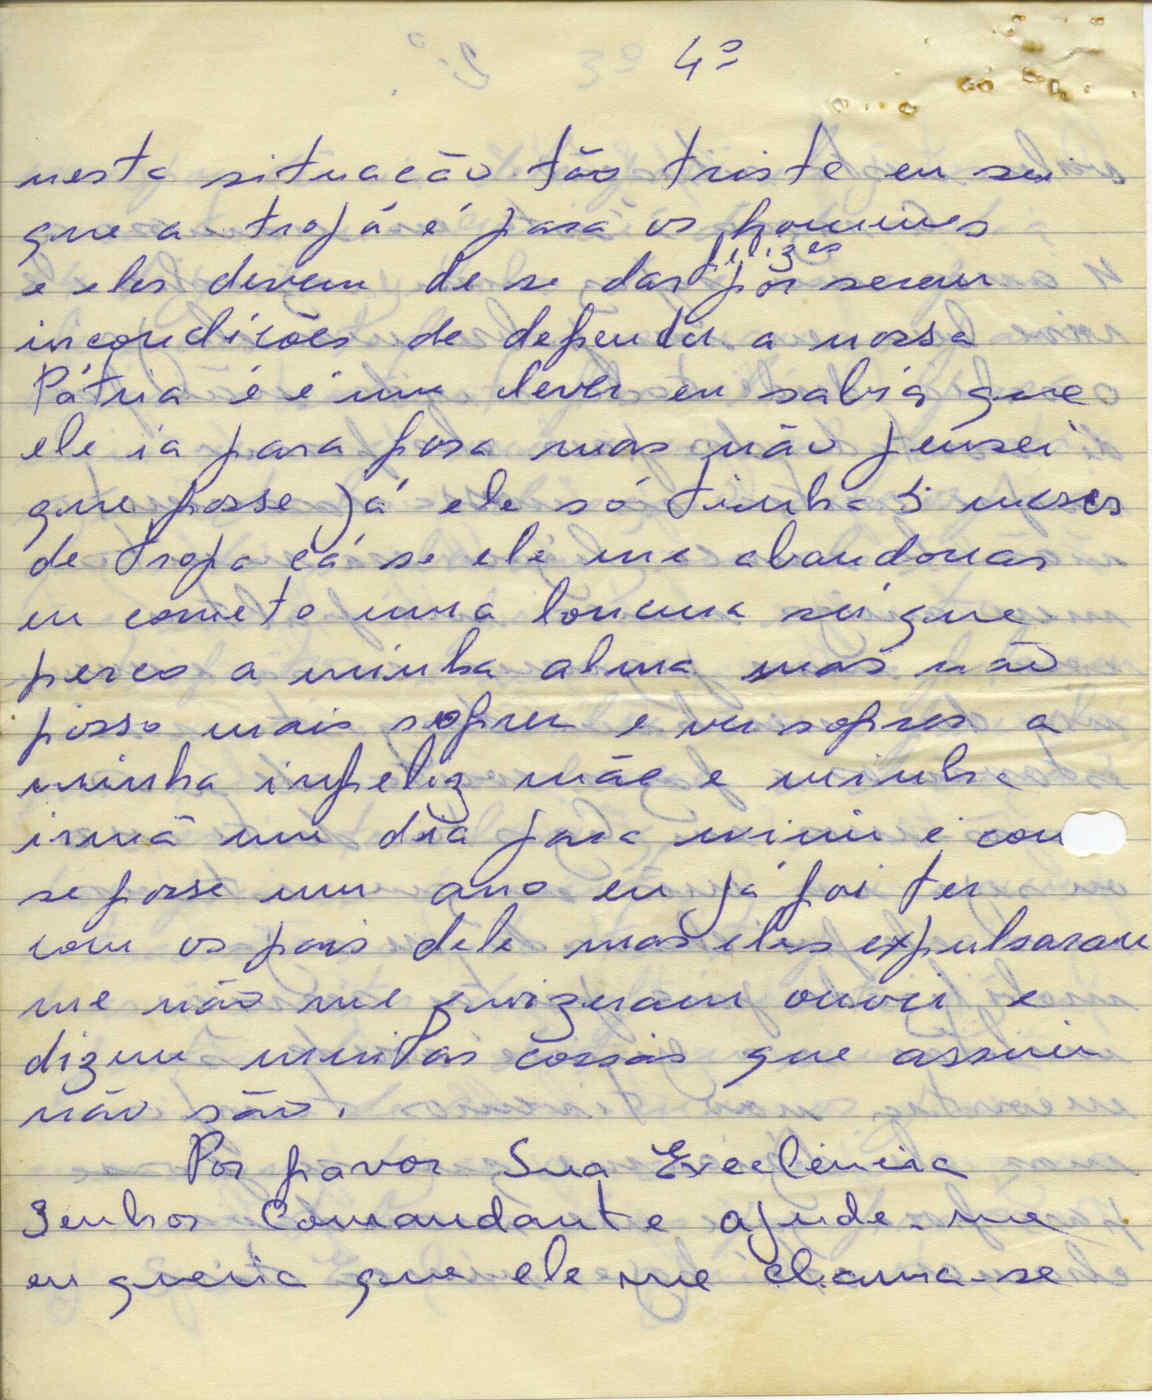 4º
nesta situacão tão triste eu sei
que a tropá é pará os homines
e eles devem de se dar felizes por serem
incondicões de defender a nossa
Pátria é é um dever eu sabia que
ele ia para fora mas não pensei
que fosse já ele só tinha 5 meses
de tropa cá se ele me abandonar
eu cometo uma loucura sei que
perco a minha alma mas não
posso mais sofrer e ver sofrer a
minha infeliz mãe e minha
irmã um dia para mimir é com
se fosse um ano eu já foi ter
com os pais dele mas eles expulsaram
me não me quizeram ouvir e
dizem muitas coisas que assim
não são.
Por favor Sua Execlência
Senhor Comandante ajude-me
eu queria que ele me chama-se